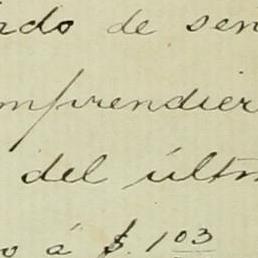 ado de sen
mprendier
del últi
o á $. 1 03